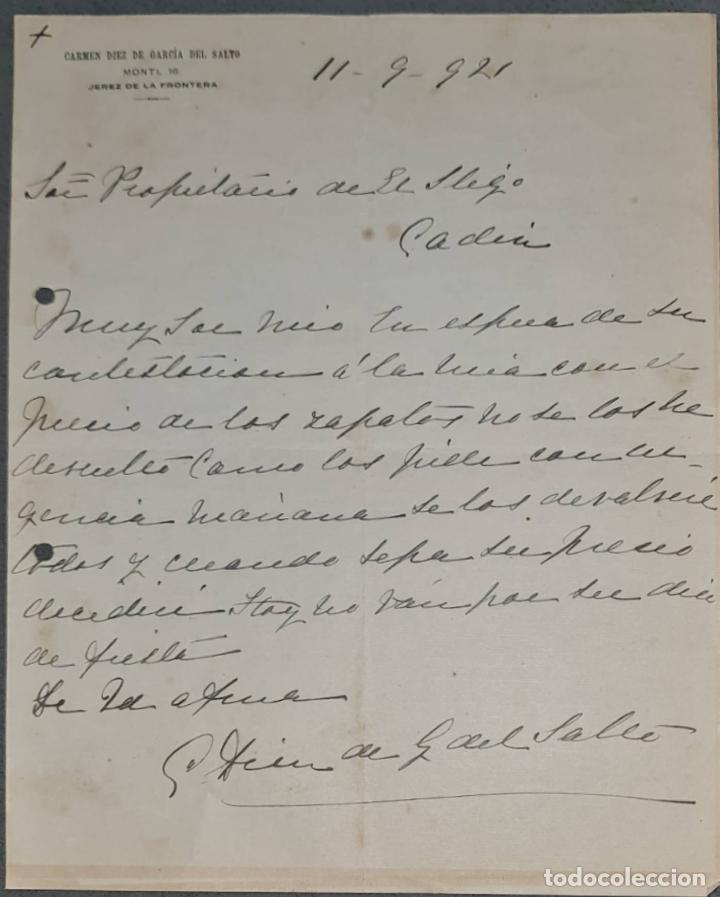 +
CARMEN DIEZ DE GARCÍA DEL SALTO
MONTI, 16
JEREZ DE LA FRONTERA
11-9-921
Sor Propietario de El
Cadiz
Muy Sor mio En espera de su
contestacion á la mia con el
precio de los zapatos no se los he
devuelto Como los pide con ur-
gencia mañana se los devolvere
todos y cuando sepa su precio
decidire Hoy no ván por ser dia
de fiesta
De Vd atma
C Diez de G del Salto
todocoleccion